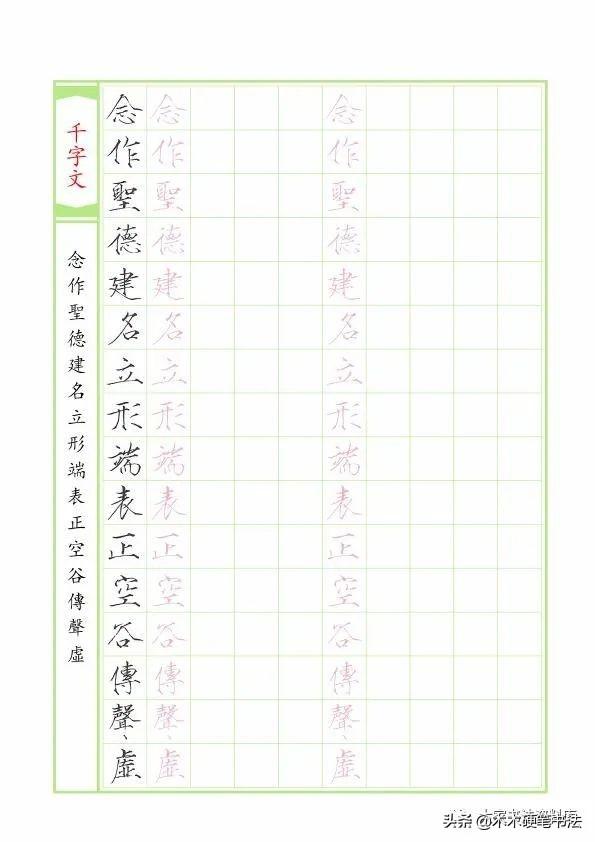 千字文
念作聖德建名立形端表正空谷傳聲虛
念作聖德建名立形端表正空谷傳聲虛
念作聖德建名立形端表正空谷傳聲虛
念作聖德建名立形端表正空谷傳聲虛
头条 @木木硬笔书法